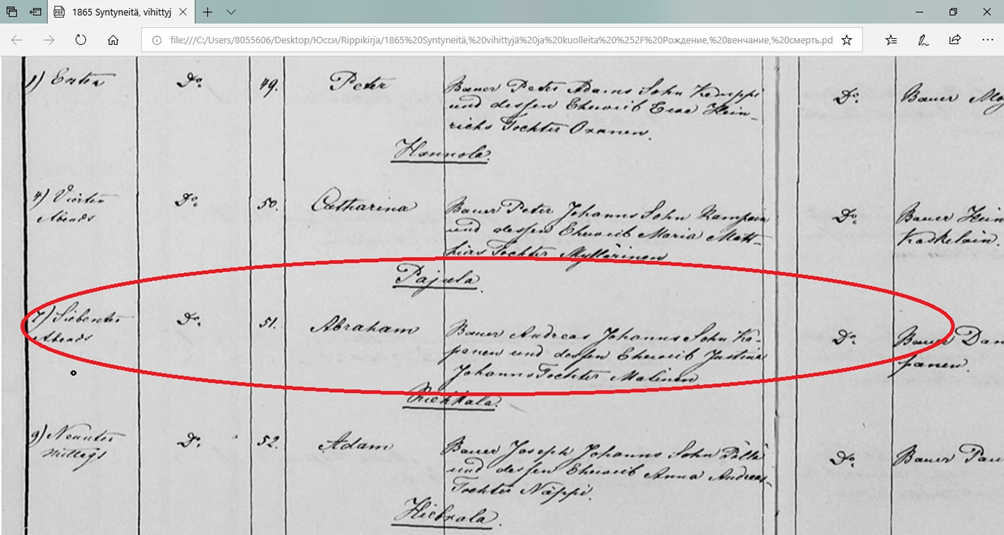 1865 Syntyneitä, vihittyj
file:///C:/Users/8055606/Desktop/Юсси/Rippikirja/1865%20Syntyneitä,%20vihittyjä%20ja%20kuolleita%20%252F%20Рождение,%20венчание,%20смерть.pdf
1) Ersten Do. 49. Peter Bauer Peter Adams Sohn Kemppi Do. Bauer
und dessen Eheweib Eva Hein-
richs Tochter Oranen.
Hannola.
4) Vierten Abends Do. 50. Catharina Bauer Peter Johanns Sohn Do. Bauer
und dessen Eheweib Maria Matt-
hias Tochter Myllärinen
Pajula
7) Siebenten Abends Do. 51. Abraham Bauer Andreas Johanns Sohn Ka- Do. Bauer Dan
ponen und dessen Eheweib Justina panen.
Johanns Tochter Matinen
Riekkala.
9) Neunten Mittags Do. 52. Adam Bauer Joseph Johanns Sohn Do. Bauer Pau
und dessen Eheweib Anna Andreas
Tochter Näppi.